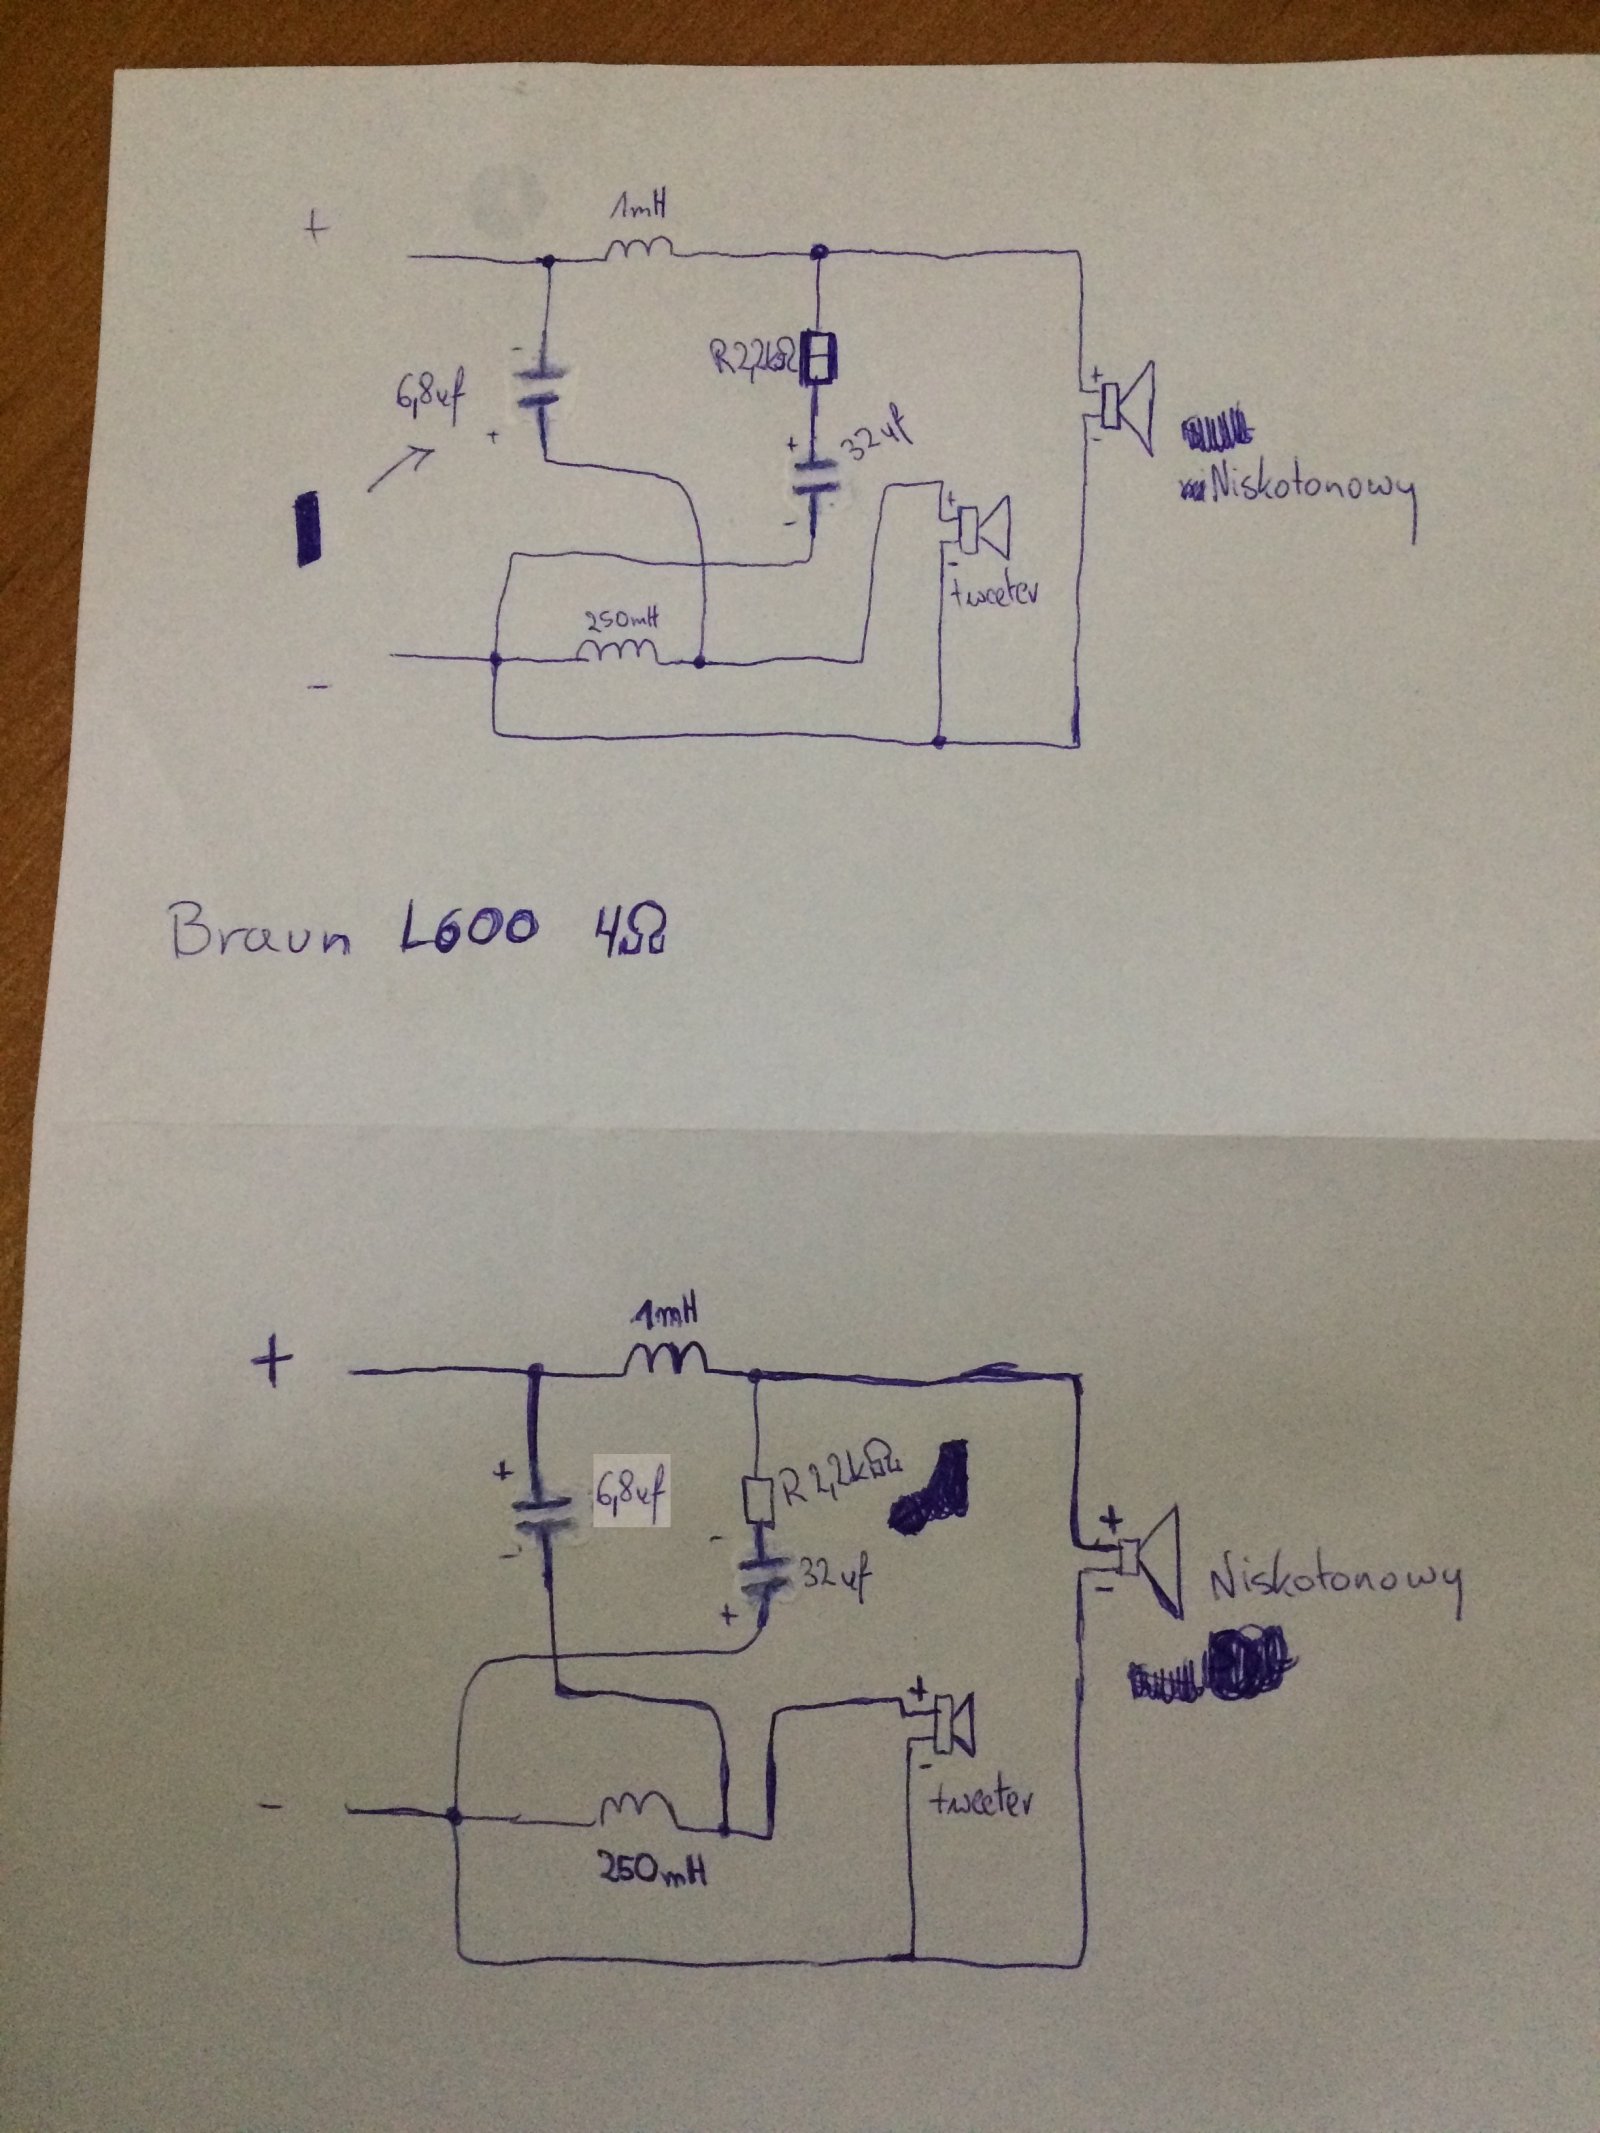 1mH
+
R2,2kΩ
6,8uf
-
+
+
32uf
-
+
-
Niskotonowy
+
-
tweeter
250mH
-
Braun L600 4Ω
1mH
+
+
6,8uf
-
R 2,2kΩ
-
32uf
+
+
-
Niskotonowy
+
-
tweeter
-
250mH